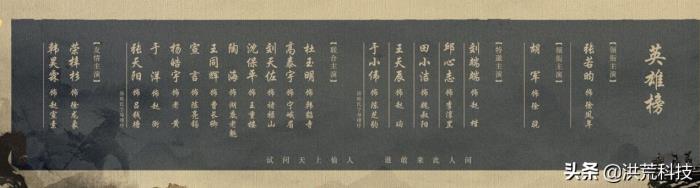 英雄榜
领衔主演
张若昀 饰 徐凤年
领衔主演
胡军 饰 徐骁
特邀主演
刘端端 饰 赵楷
邱心志 饰 李淳罡
田小洁 饰 魏叔阳
王天辰 饰 赵珣
于小伟 饰 陈芝豹
联合主演
杜玉明 饰 韩貂寺
高泰宇 饰 宁峨眉
刘天佐 饰 褚禄山
沈保平 饰 王重楼
陶海 饰 湖底老魁
王同辉 饰 曹长卿
宣言 饰 陈亮锡
杨皓宇 饰 老黄
于洋 饰 赵衡
张天阳 饰 吕钱塘
按姓氏字母顺序
友情主演
荣梓杉 饰 徐龙象
韩昊霖 饰 赵宣素
试问天上仙人 谁敢来此人间
头条 @洪荒科技